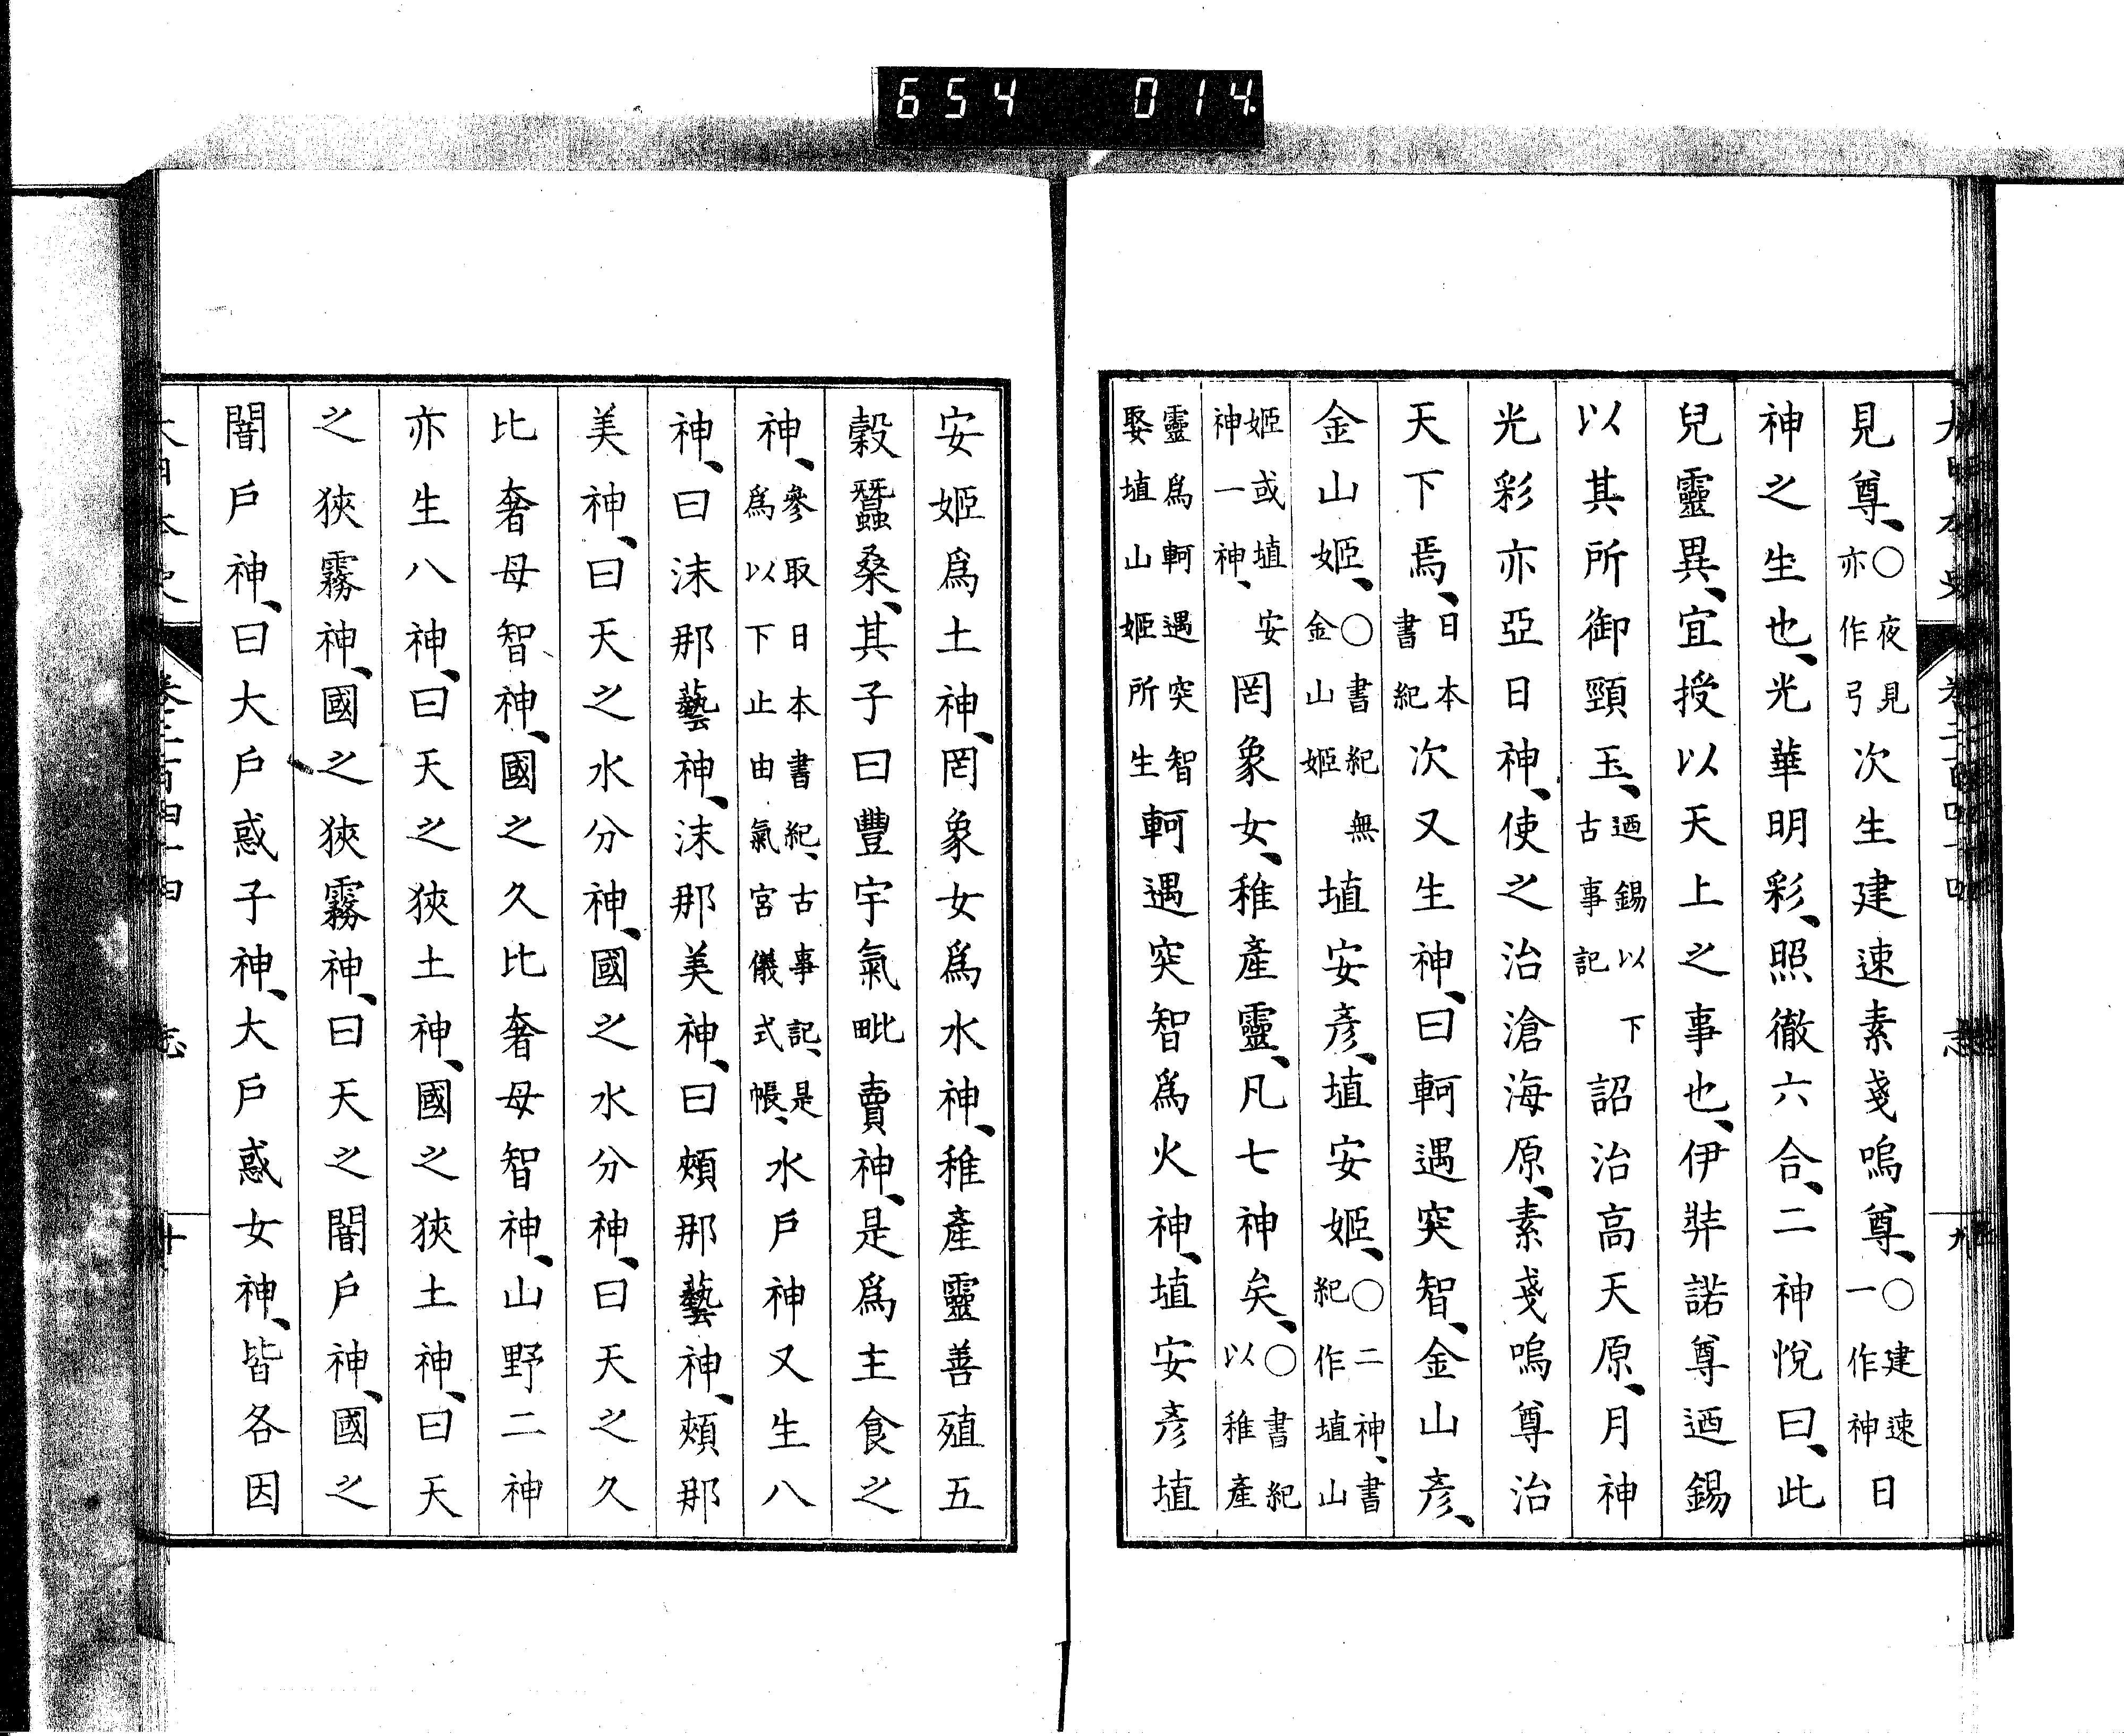 654 014
見尊、○夜見亦作弓次生建速素戔嗚尊、○建速一作神日
神之生也、光華明彩、照徹六合、二神悅曰、此
兒靈異、宜授以天上之事也、伊弉諾尊迺錫
以其所御頸玉、迺錫以下古事記詔治高天原、月神
光彩亦亞日神、使之治滄海原、素戔嗚尊治
天下焉、日本書紀次又生神、曰軻遇突智、金山彥、
金山姬、○書紀無金山姬埴安彥、埴安姬、○二神、書紀作埴山
姬或埴安神一神、罔象女、稚產靈、凡七神矣、○書紀以稚產
靈爲軻遇突智娶埴山姬所生軻遇突智爲火神、埴安彥埴
安姬爲土神、罔象女爲水神、稚產靈善殖五
穀蠶桑、其子曰豐宇氣毗賣神、是爲主食之
神、參取日本書紀、古事記、是爲以下止由氣宮儀式帳、水戶神又生八
神、曰沫那藝神、沫那美神、曰頰那藝神、頰那
美神、曰天之水分神、國之水分神、曰天之久
比奢母智神、國之久比奢母智神、山野二神
亦生八神、曰天之狹土神、國之狹土神、曰天
之狹霧神、國之狹霧神、曰天之闇戶神、國之
闇戶神、曰大戶惑子神、大戶惑女神、皆各因